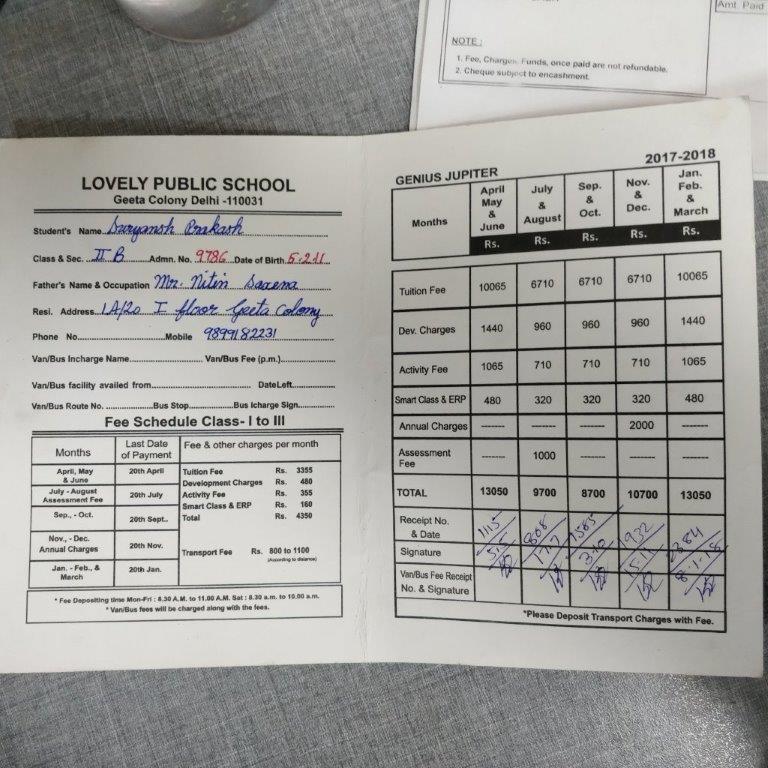 Amt. Paid
NOTE :
1. Fee, Charges, Funds, once paid are not refundable.
2. Cheque subject to encashment.
LOVELY PUBLIC SCHOOL
Geeta Colony Delhi -110031
Student's Name Suryansh Prakash
Class & Sec. II B Admn. No. 9786 Date of Birth 5.2.11
Father's Name & Occupation Mr. Nitin Saxena
Resi. Address 1A/20 I floor Geeta Colony
Phone No. Mobile 9899182231
Van/Bus Incharge Name Van/Bus Fee (p.m.)
Van/Bus facility availed from DateLeft
Van/Bus Route No. Bus Stop Bus Icharge Sign
Fee Schedule Class- I to III
Months Last Date of Payment Fee & other charges per month
April, May & June 20th April
July - August Assessment Fee 20th July
Sep., - Oct. 20th Sept..
Nov., - Dec. Annual Charges 20th Nov.
Jan. - Feb., & March 20th Jan.
Tuition Fee Rs. 3355
Development Charges Rs. 480
Activity Fee Rs. 355
Smart Class & ERP Rs. 160
Total Rs. 4350
Transport Fee Rs. 800 to 1100
(According to distance)
* Fee Depositing time Mon-Fri : 8.30 A.M. to 11.00 A.M. Sat : 8.30 a.m. to 10.00 a.m.
* Van/Bus fees will be charged along with the fees.
2017-2018
GENIUS JUPITER
Months April May & June July & August Sep. & Oct. Nov. & Dec. Jan. Feb. & March
Rs. Rs. Rs. Rs. Rs.
Tuition Fee 10065 6710 6710 6710 10065
Dev. Charges 1440 960 960 960 1440
Activity Fee 1065 710 710 710 1065
Smart Class & ERP 480 320 320 320 480
Annual Charges ------- ------- ------- 2000 -------
Assessment Fee ------- 1000 ------- ------- -------
TOTAL 13050 9700 8700 10700 13050
Receipt No. & Date 1115
Signature
Van/Bus Fee Receipt No. & Signature
*Please Deposit Transport Charges with Fee.